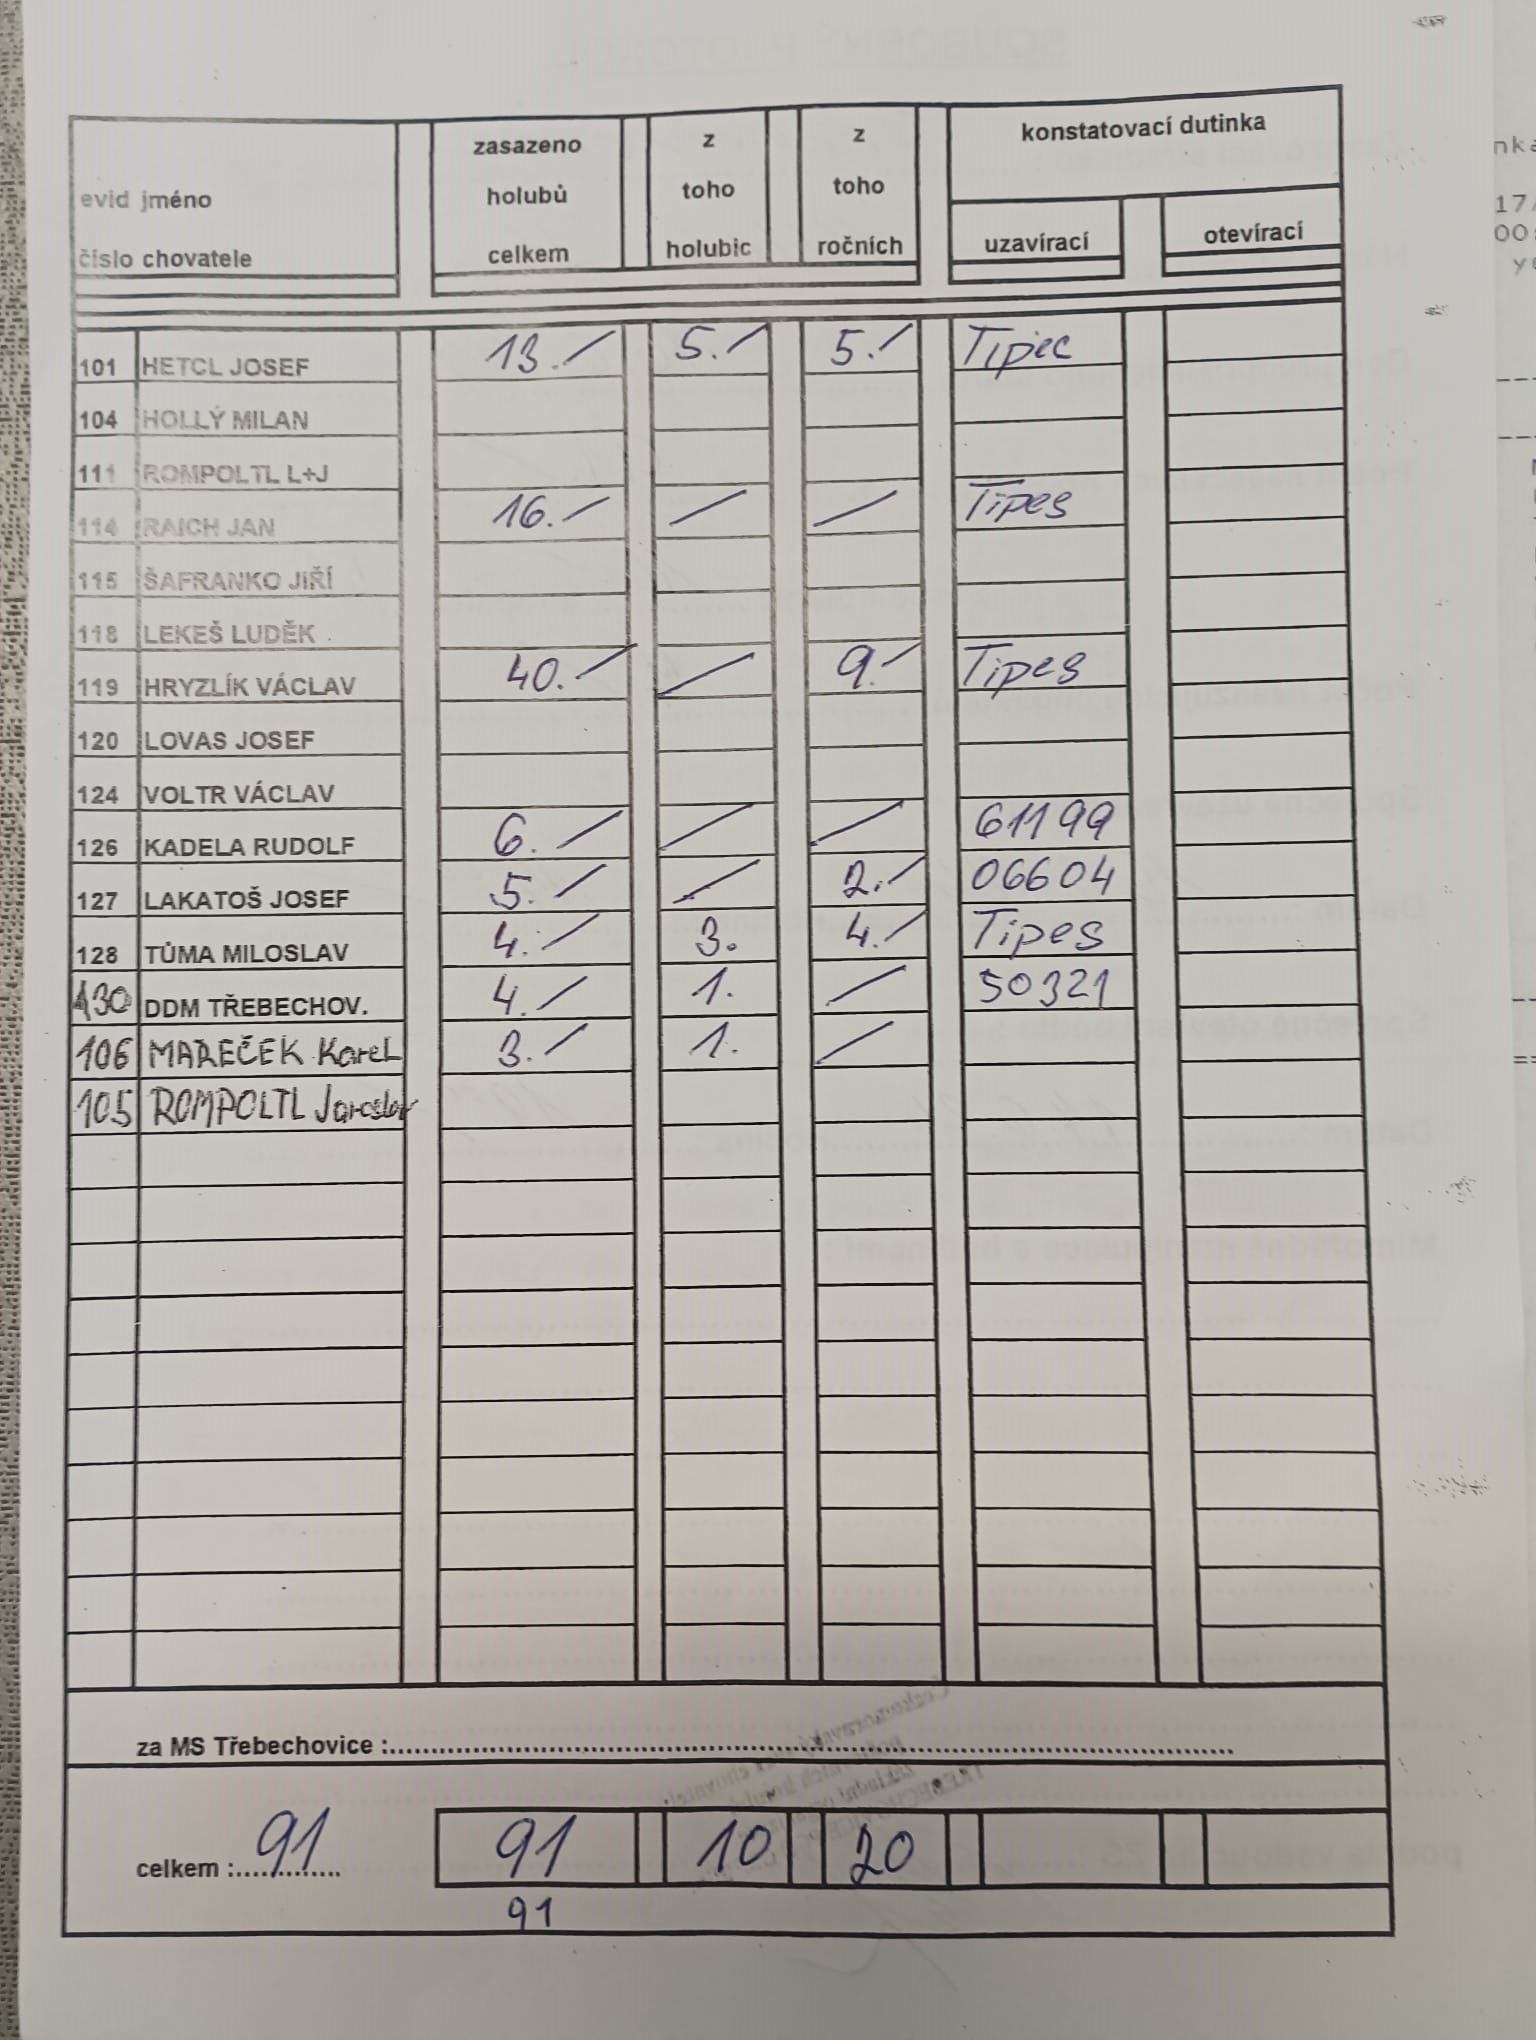 evid jméno
číslo chovatele
zasazeno
holubů
celkem
z
toho
holubic
z
toho
ročních
konstatovací dutinka
uzavírací
otevírací
101 HETCL JOSEF 13. / 5. / 5. / Tipec
104 HOLLÝ MILAN
111 ROMPOLTL L+J
114 RAICH JAN 16. / / / Tipes
115 ŠAFRANKO JIŘÍ
118 LEKEŠ LUDĚK
119 HRYZLÍK VÁCLAV 40. / / 9. / Tipes
120 LOVAS JOSEF
124 VOLTR VÁCLAV
126 KADELA RUDOLF 6. / / / 61199
127 LAKATOŠ JOSEF 5. / / 2. / 06604
128 TŮMA MILOSLAV 4. / 3. 4. / Tipes
130 DDM TŘEBECHOV. 4. / 1. / 50321
106 MAREČEK Karel 3. / 1. /
105 ROMPOLTL Jaroslav
za MS Třebechovice :
celkem : 91 91 10 20
91